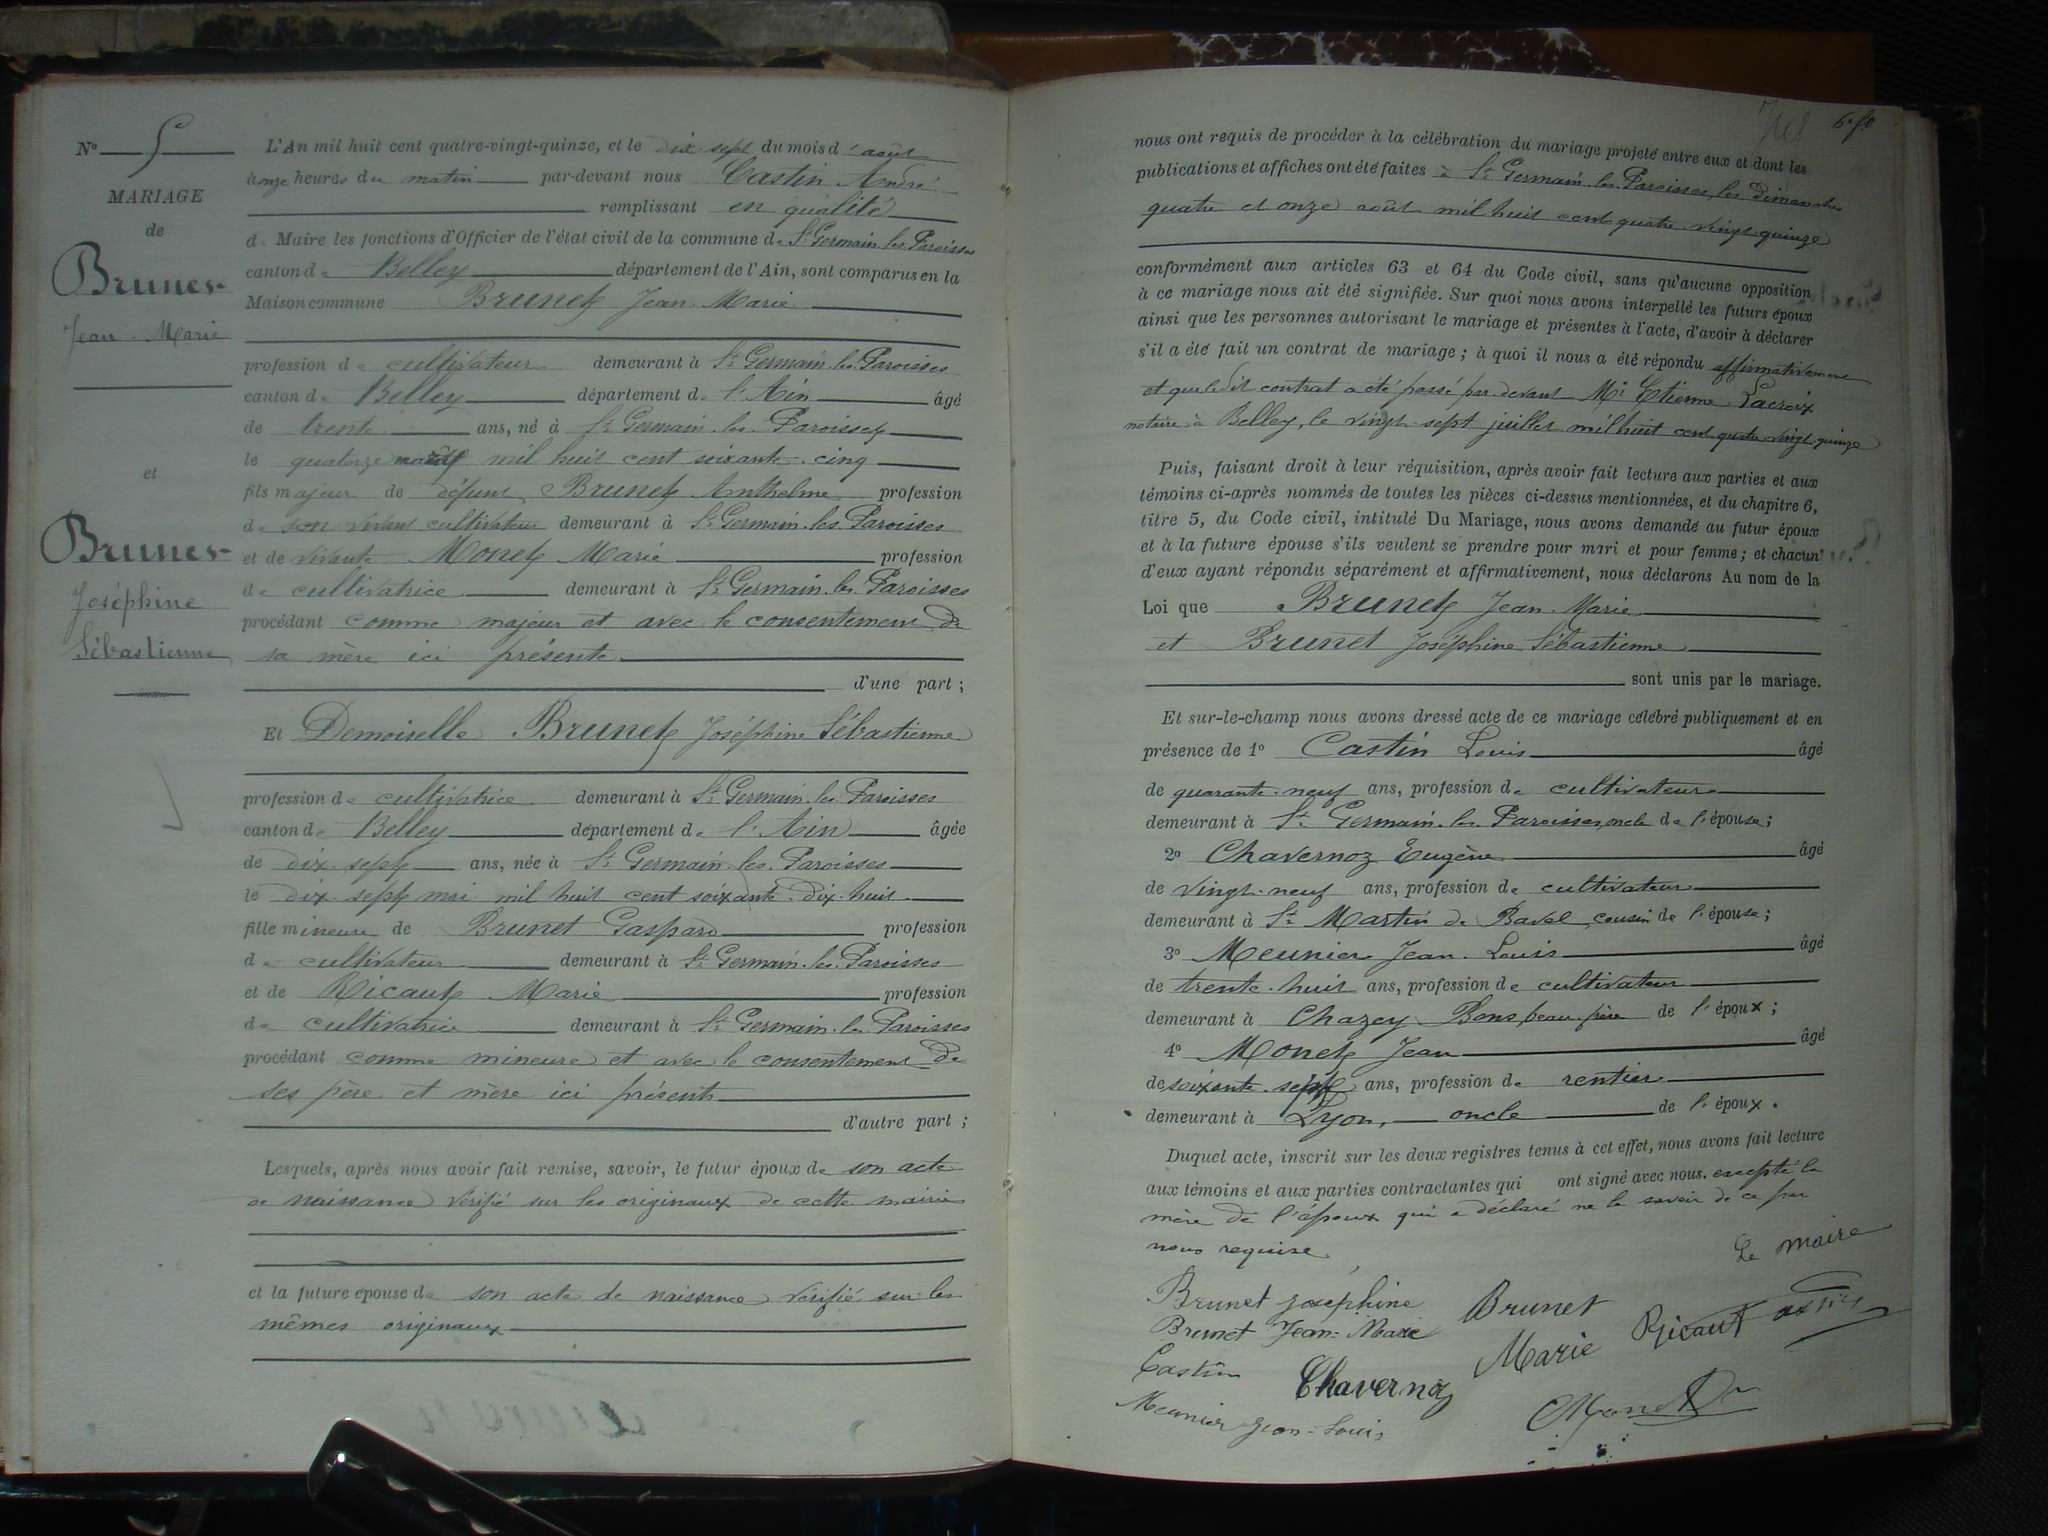 N° 5
MARIAGE
de
Brunet
Jean-Marie
et
Brunet
Joséphine
Sébastienne
L'An mil huit cent quatre-vingt-quinze, et le dix-sept du mois d'août
à onze heures du matin par-devant nous Castin André
remplissant en qualité
de Maire les fonctions d'Officier de l'état civil de la commune de St Germain-les-Paroisses
canton de Belley département de l'Ain, sont comparus en la
Maison commune Brunet Jean-Marie
profession de cultivateur demeurant à St Germain-les-Paroisses
canton de Belley département de l'Ain âgé
de trente ans, né à St Germain-les-Paroisses
le quatorze mil huit cent soixante-cinq
fils majeur de défunt Brunet Anthelme profession
de son vivant cultivateur demeurant à St Germain-les-Paroisses
et de vivante Monet Marie profession
de cultivatrice demeurant à St Germain-les-Paroisses
procédant comme majeur et avec le consentement de
sa mère ici présente
d'une part ;
Et Demoiselle Brunet Joséphine Sébastienne
profession de cultivatrice demeurant à St Germain-les-Paroisses
canton de Belley département de l'Ain âgée
de dix-sept ans, née à St Germain-les-Paroisses
le dix-sept mai mil huit cent soixante-dix-huit
fille mineure de Brunet Gaspard profession
de cultivateur demeurant à St Germain-les-Paroisses
et de Ricaut Marie profession
de cultivatrice demeurant à St Germain-les-Paroisses
procédant comme mineure et avec le consentement de
ses père et mère ici présents
d'autre part ;
Lesquels, après nous avoir fait remise, savoir, le futur époux de son acte
de naissance vérifié sur les originaux de cette mairie
et la future épouse de son acte de naissance vérifié sur les
mêmes originaux
nous ont requis de procéder à la célébration du mariage projeté entre eux et dont les
publications et affiches ont été faites à St Germain-les-Paroisses, les Dimanches
quatre et onze août mil huit cent quatre-vingt-quinze
conformément aux articles 63 et 64 du Code civil, sans qu'aucune opposition
à ce mariage nous ait été signifiée. Sur quoi nous avons interpellé les futurs époux
ainsi que les personnes autorisant le mariage et présentes à l'acte, d'avoir à déclarer
s'il a été fait un contrat de mariage ; à quoi il nous a été répondu affirmativement
et que ledit contrat a été passé par-devant Me Etienne Lacroix
notaire à Belley, le vingt-sept juillet mil huit cent quatre-vingt-quinze
Puis, faisant droit à leur réquisition, après avoir fait lecture aux parties et aux
témoins ci-après nommés de toutes les pièces ci-dessus mentionnées, et du chapitre 6,
titre 5, du Code civil, intitulé Du Mariage, nous avons demandé au futur époux
et à la future épouse s'ils veulent se prendre pour mari et pour femme ; et chacun
d'eux ayant répondu séparément et affirmativement, nous déclarons Au nom de la
Loi que Brunet Jean-Marie
et Brunet Joséphine Sébastienne
sont unis par le mariage.
Et sur-le-champ nous avons dressé acte de ce mariage célébré publiquement et en
présence de 1° Castin Louis âgé
de quarante-neuf ans, profession de cultivateur
demeurant à St Germain-les-Paroisses, oncle de l'épouse ;
2° Chavernoz Eugène âgé
de vingt-neuf ans, profession de cultivateur
demeurant à St Martin de Bavel, cousin de l'épouse ;
3° Meunier Jean-Louis âgé
de trente-huit ans, profession de cultivateur
demeurant à Chazey-Bons, beau-frère de l'époux ;
4° Monet Jean âgé
de soixante-sept ans, profession de rentier
demeurant à Lyon, oncle de l'époux.
Duquel acte, inscrit sur les deux registres tenus à cet effet, nous avons fait lecture
aux témoins et aux parties contractantes qui ont signé avec nous. excepté la
mère de l'époux qui a déclaré ne le savoir de ce par
nous requise
Le Maire
Brunet Joséphine Brunet
Brunet Jean-Marie Marie Ricaut Castin
Castin Chavernoz
Meunier Jean-Louis Monet